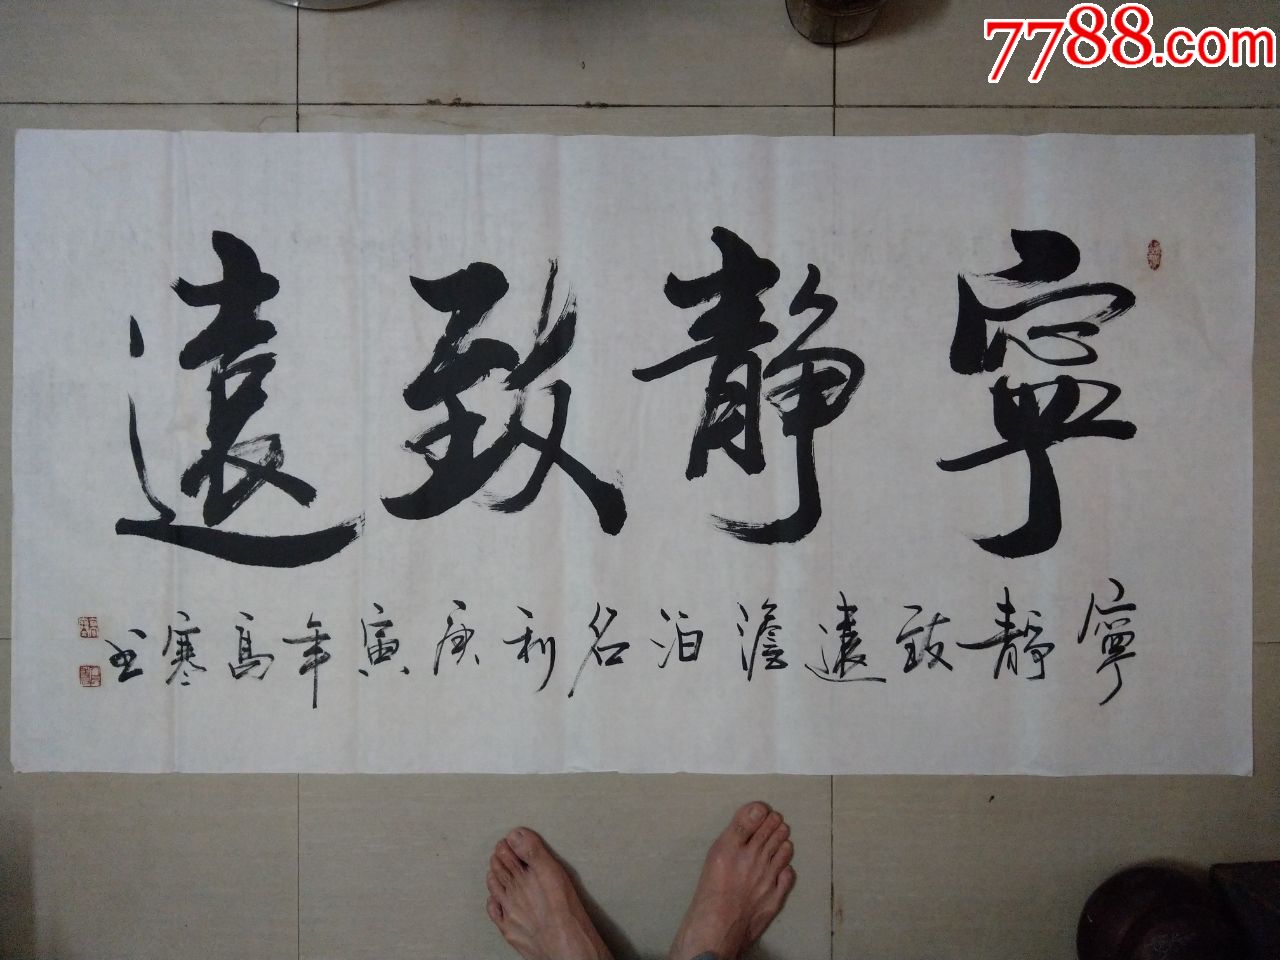 7788.com
寧靜致遠
寧靜致遠澹泊名利庚寅年高寒书